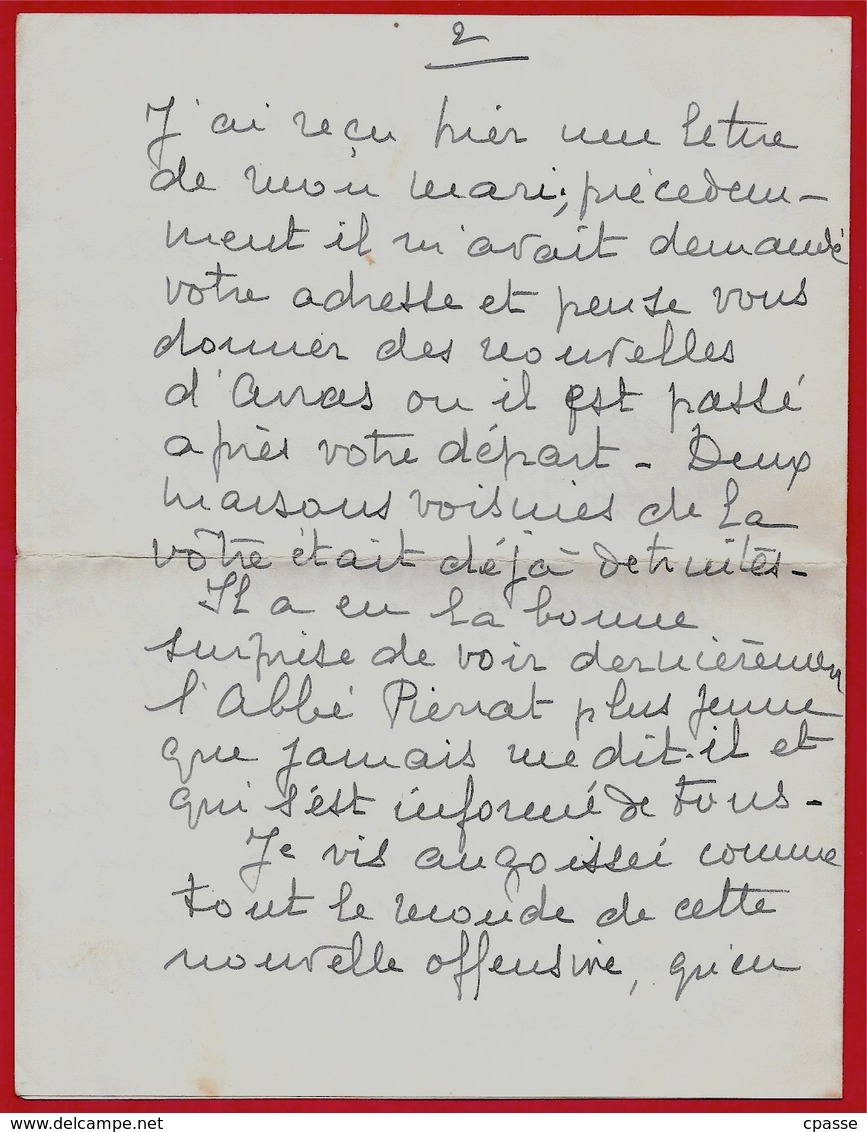 2
J'ai reçu hier une lettre
de mon mari; précedem-
ment il m'avait demandé
votre adresse et pense vous
donner des nouvelles
d'Arras ou il est passé
après votre départ - Deux
maisons voisines de la
votre était déjà detruites -
Il a eu la bonne
surprise de voir dernièremen
l'Abbé Pierrat plus jeune
que jamais me dit-il et
qui s'est informé de tous -
Je vis angoissée comme
tout le monde de cette
nouvelle offensive, qu'en
delcampe.net
cpasse